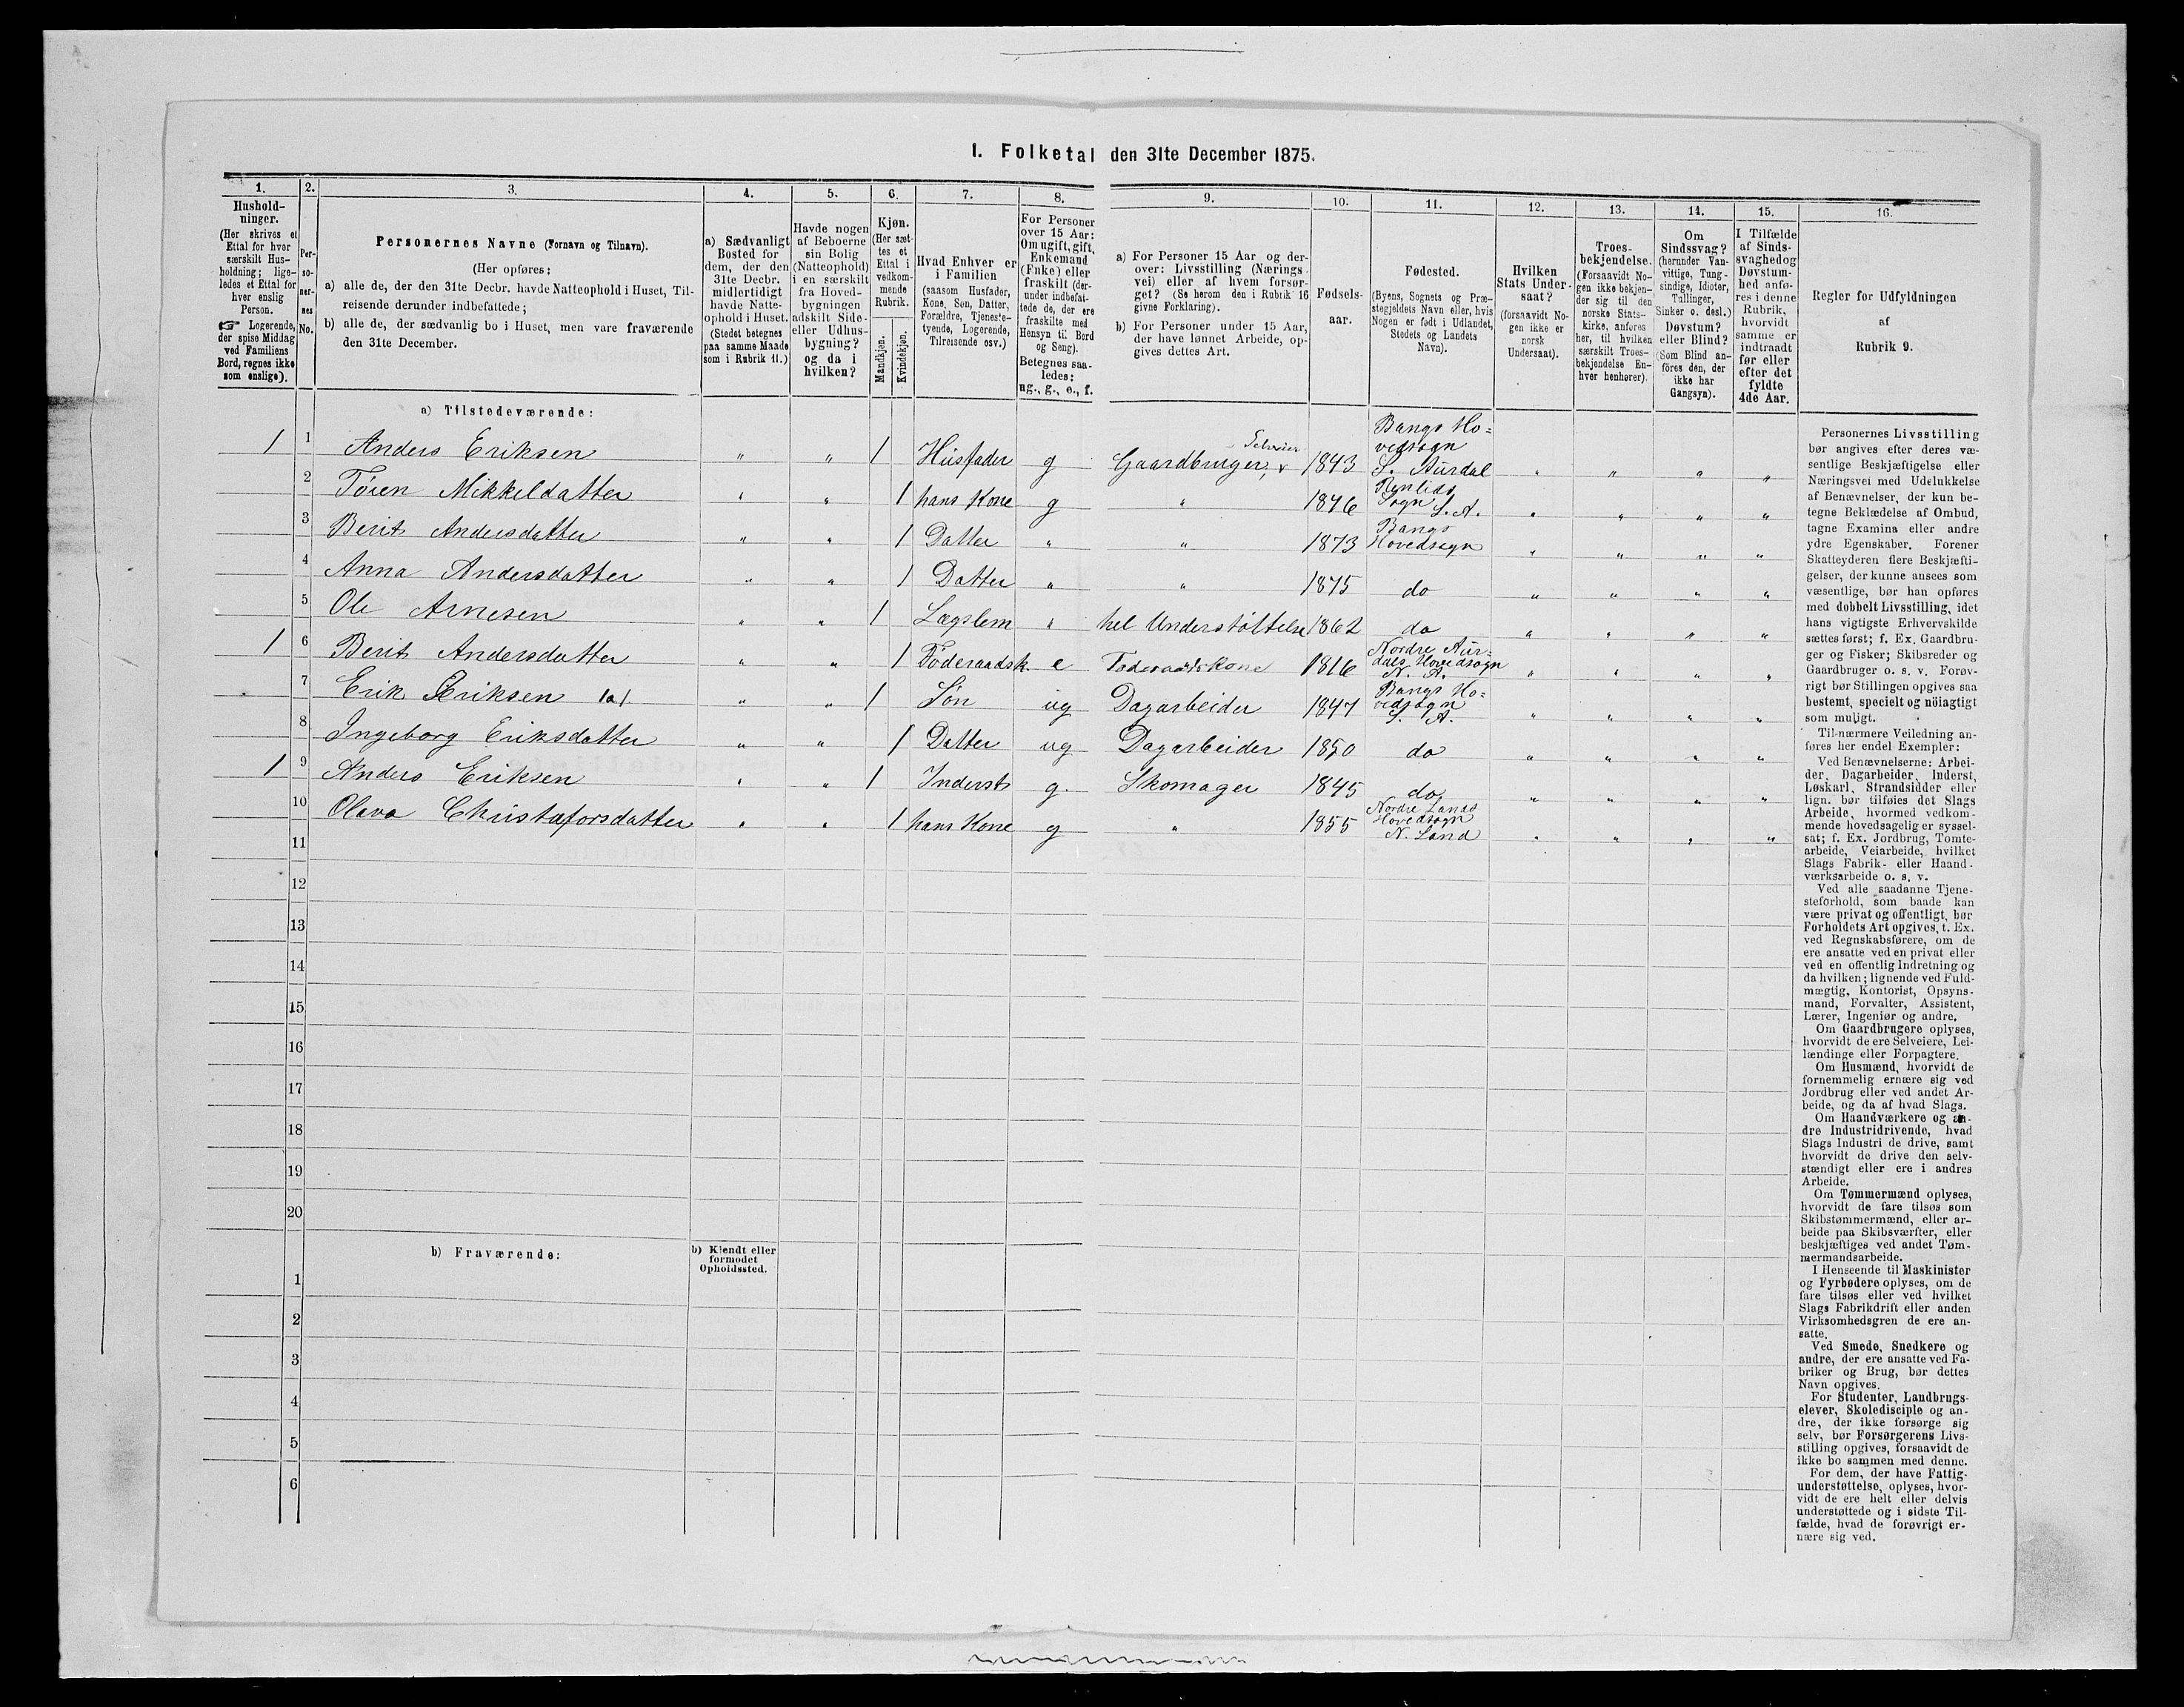 I. Folketal den 31te December 1875.
1.
Hushold-
ninger.
(Her skrives et
Ettal for hver
særskilt Hus-
holdning; lige-
ledes et Ettal for
hver enslig
Person.
☞ Logerende,
der spise Middag
ved Familiens
Bord, regnes ikke
som enslige).
2.
Per-
so-
ner-
nes
No.
3.
Personernes Navne (Fornavn og Tilnavn).
(Her opføres:
a) alle de, der den 31te Decbr. havde Natteophold i Huset, Til-
reisende derunder indbefattede;
b) alle de, der sædvanlig bo i Huset, men vare fraværende
den 31te December.
4.
a) Sædvanligt
Bosted for
dem, der den
31te Decbr.
midlertidigt
havde Natte-
ophold i Huset.
(Stedet betegnes
paa samme Maade
som i Rubrik 11.)
5.
Havde nogen
af Beboerne
sin Bolig
(Natteophold)
i en særskilt
fra Hoved-
bygningen
adskilt Side-
eller Udhus-
bygning?
og da i
hvilken?
6.
Kjøn.
(Her sæt-
tes et
Ettal i
vedkom-
mende
Rubrik.
Mandkjøn.
Kvindekjøn.
7.
Hvad Enhver er
i Familien
(saasom Husfader,
Kone, Søn, Datter,
Forældre, Tjeneste-
tyende, Logerende,
Tilreisende osv.)
8.
For Personer
over 15 Aar:
Om ugift, gift,
Enkemand
(Enke) eller
fraskilt (der-
under indbefat-
tede de, der ere
fraskilte med
Hensyn til Bord
og Seng).
Betegnes saa-
ledes:
ug., g., e., f.
9.
a) For Personer 15 Aar og der-
over: Livsstilling (Nærings
vei) eller af hvem forsør-
get? (Se herom den i Rubrik 16
givne Forklaring).
b) For Personer under 15 Aar,
der have lønnet Arbeide, op-
gives dettes Art.
10.
Fødsels-
aar.
11.
Fødested.
(Byens, Sognets og Præ-
stegjeldets Navn eller, hvis
Nogen er født i Udlandet,
Stedets og Landets
Navn).
12.
Hvilken
Stats Under-
saat?
(forsaavidt No-
gen ikke er
norsk
Undersaat).
13.
Troes-
bekjendelse.
(Forsaavidt No-
gen ikke bekjen-
der sig til den
norske Stats-
kirke, anføres
her, til hvilken
særskilt Troes-
bekjendelse En-
hver henhører).
14.
Om
Sindssvag?
(herunder Van-
vittige, Tung-
sindige, Idioter,
Tullinger,
Sinker o. desl.)
Døvstum?
eller Blind?
(Som Blind an-
føres den, der
ikke har
Gangsyn).
15.
I Tilfælde
af Sinds-
svaghed og
Døvstum-
hed anfø-
res i denne
Rubrik,
hvorvidt
samme er
indtraadt
før eller
efter det
fyldte
4de Aar.
16.
Regler for Udfyldningen
af
Rubrik 9.
a) Tilstedeværende:
1 1 Anders Eriksen " " 1 Husfader g Gaardbruger, Selveier 1843 Bangs Ho=
vedsogn
S. Aurdal " " " "
2 Tøren Mikkeldatter " " 1 hans Kone g " 1846 Renlids
Sogn S. A. " " " "
3 Berit Andersdatter " " 1 Datter " " 1873 Bangs
Hovedsogn " " " "
4 Anna Andersdatter " " 1 Datter " " 1875 do " " " "
5 Ole Arnesen " " 1 Lægslem " hel Understøttelse 1862 do " " " "
1 6 Berit Andersdatter " " 1 Føderaadsk. e Føderaadskone 1816 Nordre Aur-
dals Hovedsogn
N. A. " " " "
7 Erik Eriksen 1a1 " " 1 Søn ug Dagarbeider 1847 Bangs Ho=
vedsogn
S. A. " " " "
8 Ingeborg Eriksdatter " " 1 Datter ug Dagarbeider 1850 do " " " "
1 9 Anders Eriksen " " 1 Inderst g. Skomager 1845 do " " " "
10 Olava Christaforsdatter " " 1 hans Kone g " 1855 Nordre Lands
Hovedsogn
N. Land " " " "
11
12
13
14
15
16
17
18
19
20
b) Fraværende:
b) Kjendt eller
formodet
Opholdssted.
1
2
3
4
5
6
Personernes Livsstilling
bør angives efter deres væ-
sentlige Beskjæftigelse eller
Næringsvei med Udelukkelse
af Benævnelser, der kun be-
tegne Beklædelse af Ombud,
tagne Examina eller andre
ydre Egenskaber. Forener
Skatteyderen flere Beskjæfti-
gelser, der kunne ansees som
væsentlige, bør han opføres
med dobbelt Livsstilling, idet
hans vigtigste Erhvervskilde
sættes først; f. Ex. Gaardbru-
ger og Fisker; Skibsreder og
Gaardbruger o. s. v. Forøv-
rigt bør Stillingen opgives saa
bestemt, specielt og nöiagtigt
som muligt.
Til nærmere Veiledning an-
føres her endel Exempler:
Ved Benævnelserne: Arbei-
der, Dagarbeider, Inderst,
Løskarl, Strandsidder eller
lign. bør tilføies det Slags
Arbeide, hvormed vedkom-
mende hovedsagelig er syssel-
sat; f. Ex. Jordbrug, Tomte-
arbeide, Veiarbeide, hvilket
Slags Fabrik- eller Haand-
værksarbeide o. s. v.
Ved alle saadanne Tjene-
steforhold, som baade kan
være privat og offentligt, bør
Forholdets Art opgives, t. Ex.
ved Regnskabsførere, om de
ere ansatte ved en privat eller
ved en offentlig Indretning og
da hvilken; lignende ved Fuld-
mægtig, Kontorist, Opsyns-
mand, Forvalter, Assistent,
Lærer, Ingeniør og andre.
Om Gaardbrugere oplyses,
hvorvidt de ere Selveiere, Lei-
lændinge eller Forpagtere.
Om Husmænd, hvorvidt de
fornemmelig ernære sig ved
Jordbrug eller ved andet Ar-
beide, og da af hvad Slags.
Om Haandværkere og an-
dre Industridrivende, hvad
Slags Industri de drive, samt
hvorvidt de drive den selv-
stændigt eller ere i andres
Arbeide.
Om Tømmermænd oplyses,
hvorvidt de fare tilsøs som
Skibstømmermænd, eller ar-
beide paa Skibsværfter, eller
beskjæftiges ved andet Tøm-
mermandsarbeide.
I Henseende til Maskinister
og Fyrbødere oplyses, om de
fare tilsøs eller ved hvilket
Slags Fabrikdrift eller anden
Virksomhedsgren de ere an-
satte.
Ved Smede, Snedkere og
andre, der ere ansatte ved Fa-
briker og Brug, bør dettes
Navn opgives.
For Studenter, Landbrugs-
elever, Skoledisciple og an-
dre, der ikke forsørge sig
selv, bør Forsørgerens Livs-
stilling opgives, forsaavidt de
ikke bo sammen med denne.
For dem, der have Fattig-
understøttelse, oplyses, hvor-
vidt de ere helt eller delvis
understøttede og i sidste Til-
fælde, hvad de forøvrigt er-
nære sig ved.